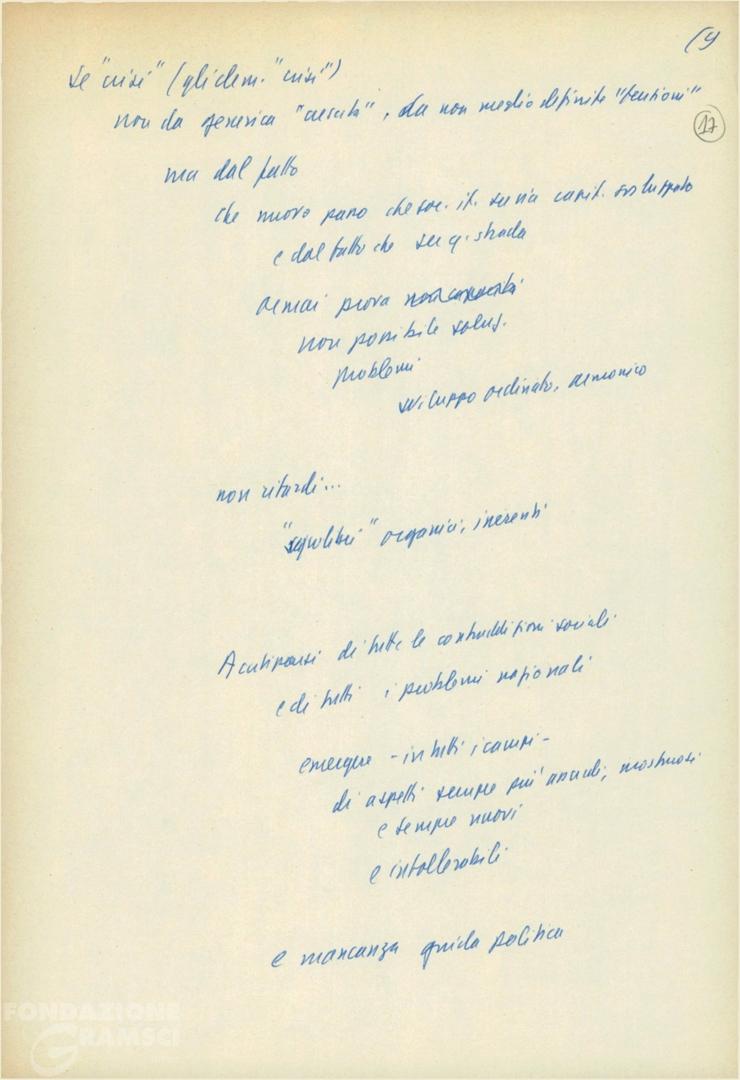 (9
17
Se "crisi" (gli dem. "crisi")
non da generica "crescita", da non meglio definite "tensioni"
ma dal fatto
che nuovo passo che soc. it. su via capit. sviluppato
e dal fatto che su q. strada
ormai prova
non possibile soluz.
problemi
sviluppo ordinato, armonico
non ritardi...
"squilibri" organici, inerenti
Acutizzarsi di tutte le contraddizioni sociali
e di tutti i problemi nazionali
emergere - in tutti i campi -
di aspetti sempre più assurdi, mostruosi
e sempre nuovi
e intollerabili
e mancanza guida politica
FONDAZIONE
GRAMSCI